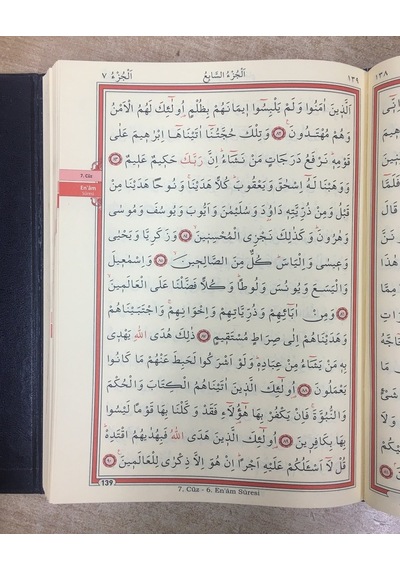 اَلْجُزْءُ ٧ اَلْجُزْءُ السَّابِعُ ١٣٩
اَلَّذ۪ينَ اٰمَنُوا وَلَمْ يَلْبِسُٓوا ا۪يمَانَهُمْ بِظُلْمٍ اُو۬لٰٓئِكَ لَهُمُ الْاَمْنُ
وَهُمْ مُهْتَدُونَ ﴿٨٢﴾ وَتِلْكَ حُجَّتُنَٓا اٰتَيْنَاهَٓا اِبْرٰه۪يمَ عَلٰى
قَوْمِه۪ۜ نَرْفَعُ دَرَجَاتٍ مَنْ نَشَٓاءُۜ اِنَّ رَبَّكَ حَك۪يمٌ عَل۪يمٌ ﴿٨٣﴾
وَوَهَبْنَا لَهُٓ اِسْحٰقَ وَيَعْقُوبَۜ كُلًّا هَدَيْنَاۚ وَنُوحًا هَدَيْنَا مِنْ
قَبْلُ وَمِنْ ذُرِّيَّتِه۪ دَاوُ۫دَ وَسُلَيْمٰنَ وَاَيُّوبَ وَيُوسُفَ وَمُوسٰى
وَهٰرُونَۜ وَكَذٰلِكَ نَجْزِي الْمُحْسِن۪ينَۙ ﴿٨٤﴾ وَزَكَرِيَّا وَيَحْيٰى
وَع۪يسٰى وَاِلْيَاسَۜ كُلٌّ مِنَ الصَّالِح۪ينَۙ ﴿٨٥﴾ وَاِسْمٰع۪يلَ
وَالْيَسَعَ وَيُونُسَ وَلُوطًاۜ وَكُلًّا فَضَّلْنَا عَلَى الْعَالَم۪ينَۙ
﴿٨٦﴾ وَمِنْ اٰبَٓائِهِمْ وَذُرِّيَّاتِهِمْ وَاِخْوَانِهِمْۚ وَاجْتَبَيْنَاهُمْ
وَهَدَيْنَاهُمْ اِلٰى صِرَاطٍ مُسْتَق۪يمٍ ﴿٨٧﴾ ذٰلِكَ هُدَى اللّٰهِ يَهْد۪ي
بِه۪ مَنْ يَشَٓاءُ مِنْ عِبَادِه۪ۜ وَلَوْ اَشْرَكُوا لَحَبِطَ عَنْهُمْ مَا كَانُوا
يَعْمَلُونَ ﴿٨٨﴾ اُو۬لٰٓئِكَ الَّذ۪ينَ اٰتَيْنَاهُمُ الْكِتَابَ وَالْحُكْمَ
وَالنُّبُوَّةَۚ فَاِنْ يَكْفُرْ بِهَا هٰٓؤُ۬لَٓاءِ فَقَدْ وَكَّلْنَا بِهَا قَوْمًا لَيْسُوا
بِهَا بِكَافِر۪ينَ ﴿٨٩﴾ اُو۬لٰٓئِكَ الَّذ۪ينَ هَدَى اللّٰهُ فَبِهُدٰيهُمُ اقْتَدِهْۜ
قُلْ لَٓا اَسْـَٔلُكُمْ عَلَيْهِ اَجْرًاۜ اِنْ هُوَ اِلَّا ذِكْرٰى لِلْعَالَم۪ينَ۟ ﴿٩٠﴾
7. Cüz
En'âm
Sûresi
139
7. Cüz - 6. En'âm Sûresi
١٣٨